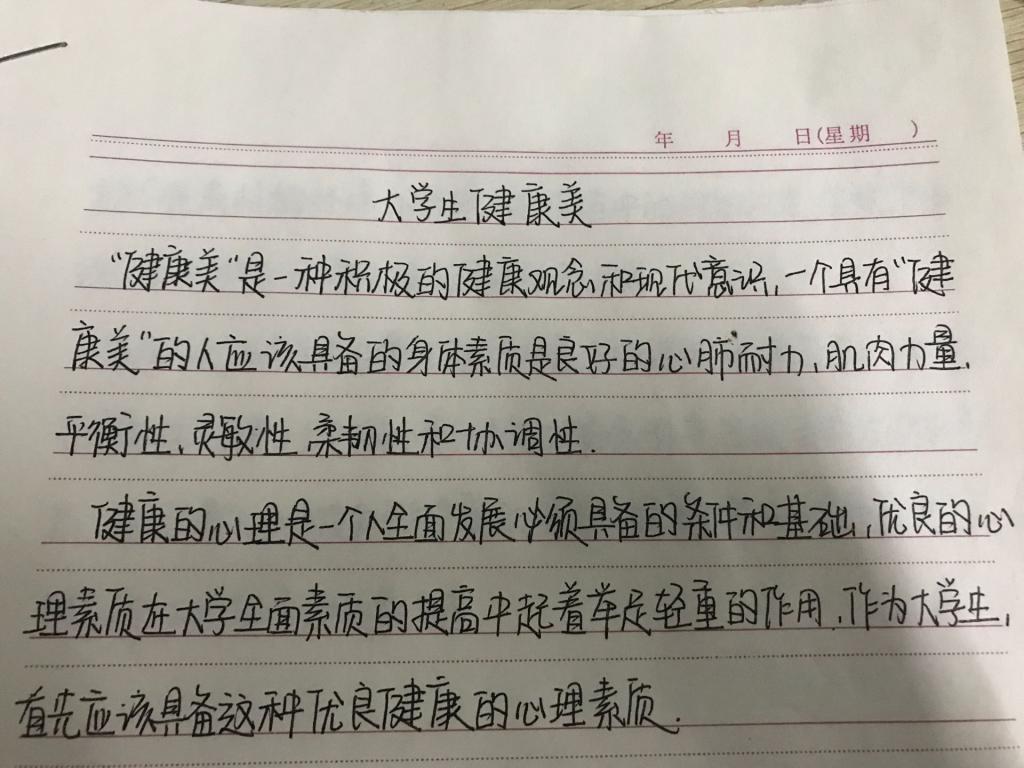 年 月 日(星期 )
大学生健康美
“健康美“是一种积极的健康观念和现代意识,一个具有“健
康美”的人应该具备的身体素质是良好的心肺耐力、肌肉力量、
平衡性、灵敏性、柔韧性和协调性.
健康的心理是一个人全面发展必须具备的条件和基础,优良的心
理素质在大学全面素质的提高中起着举足轻重的作用.作为大学生,
首先应该具备这种优良健康的心理素质.